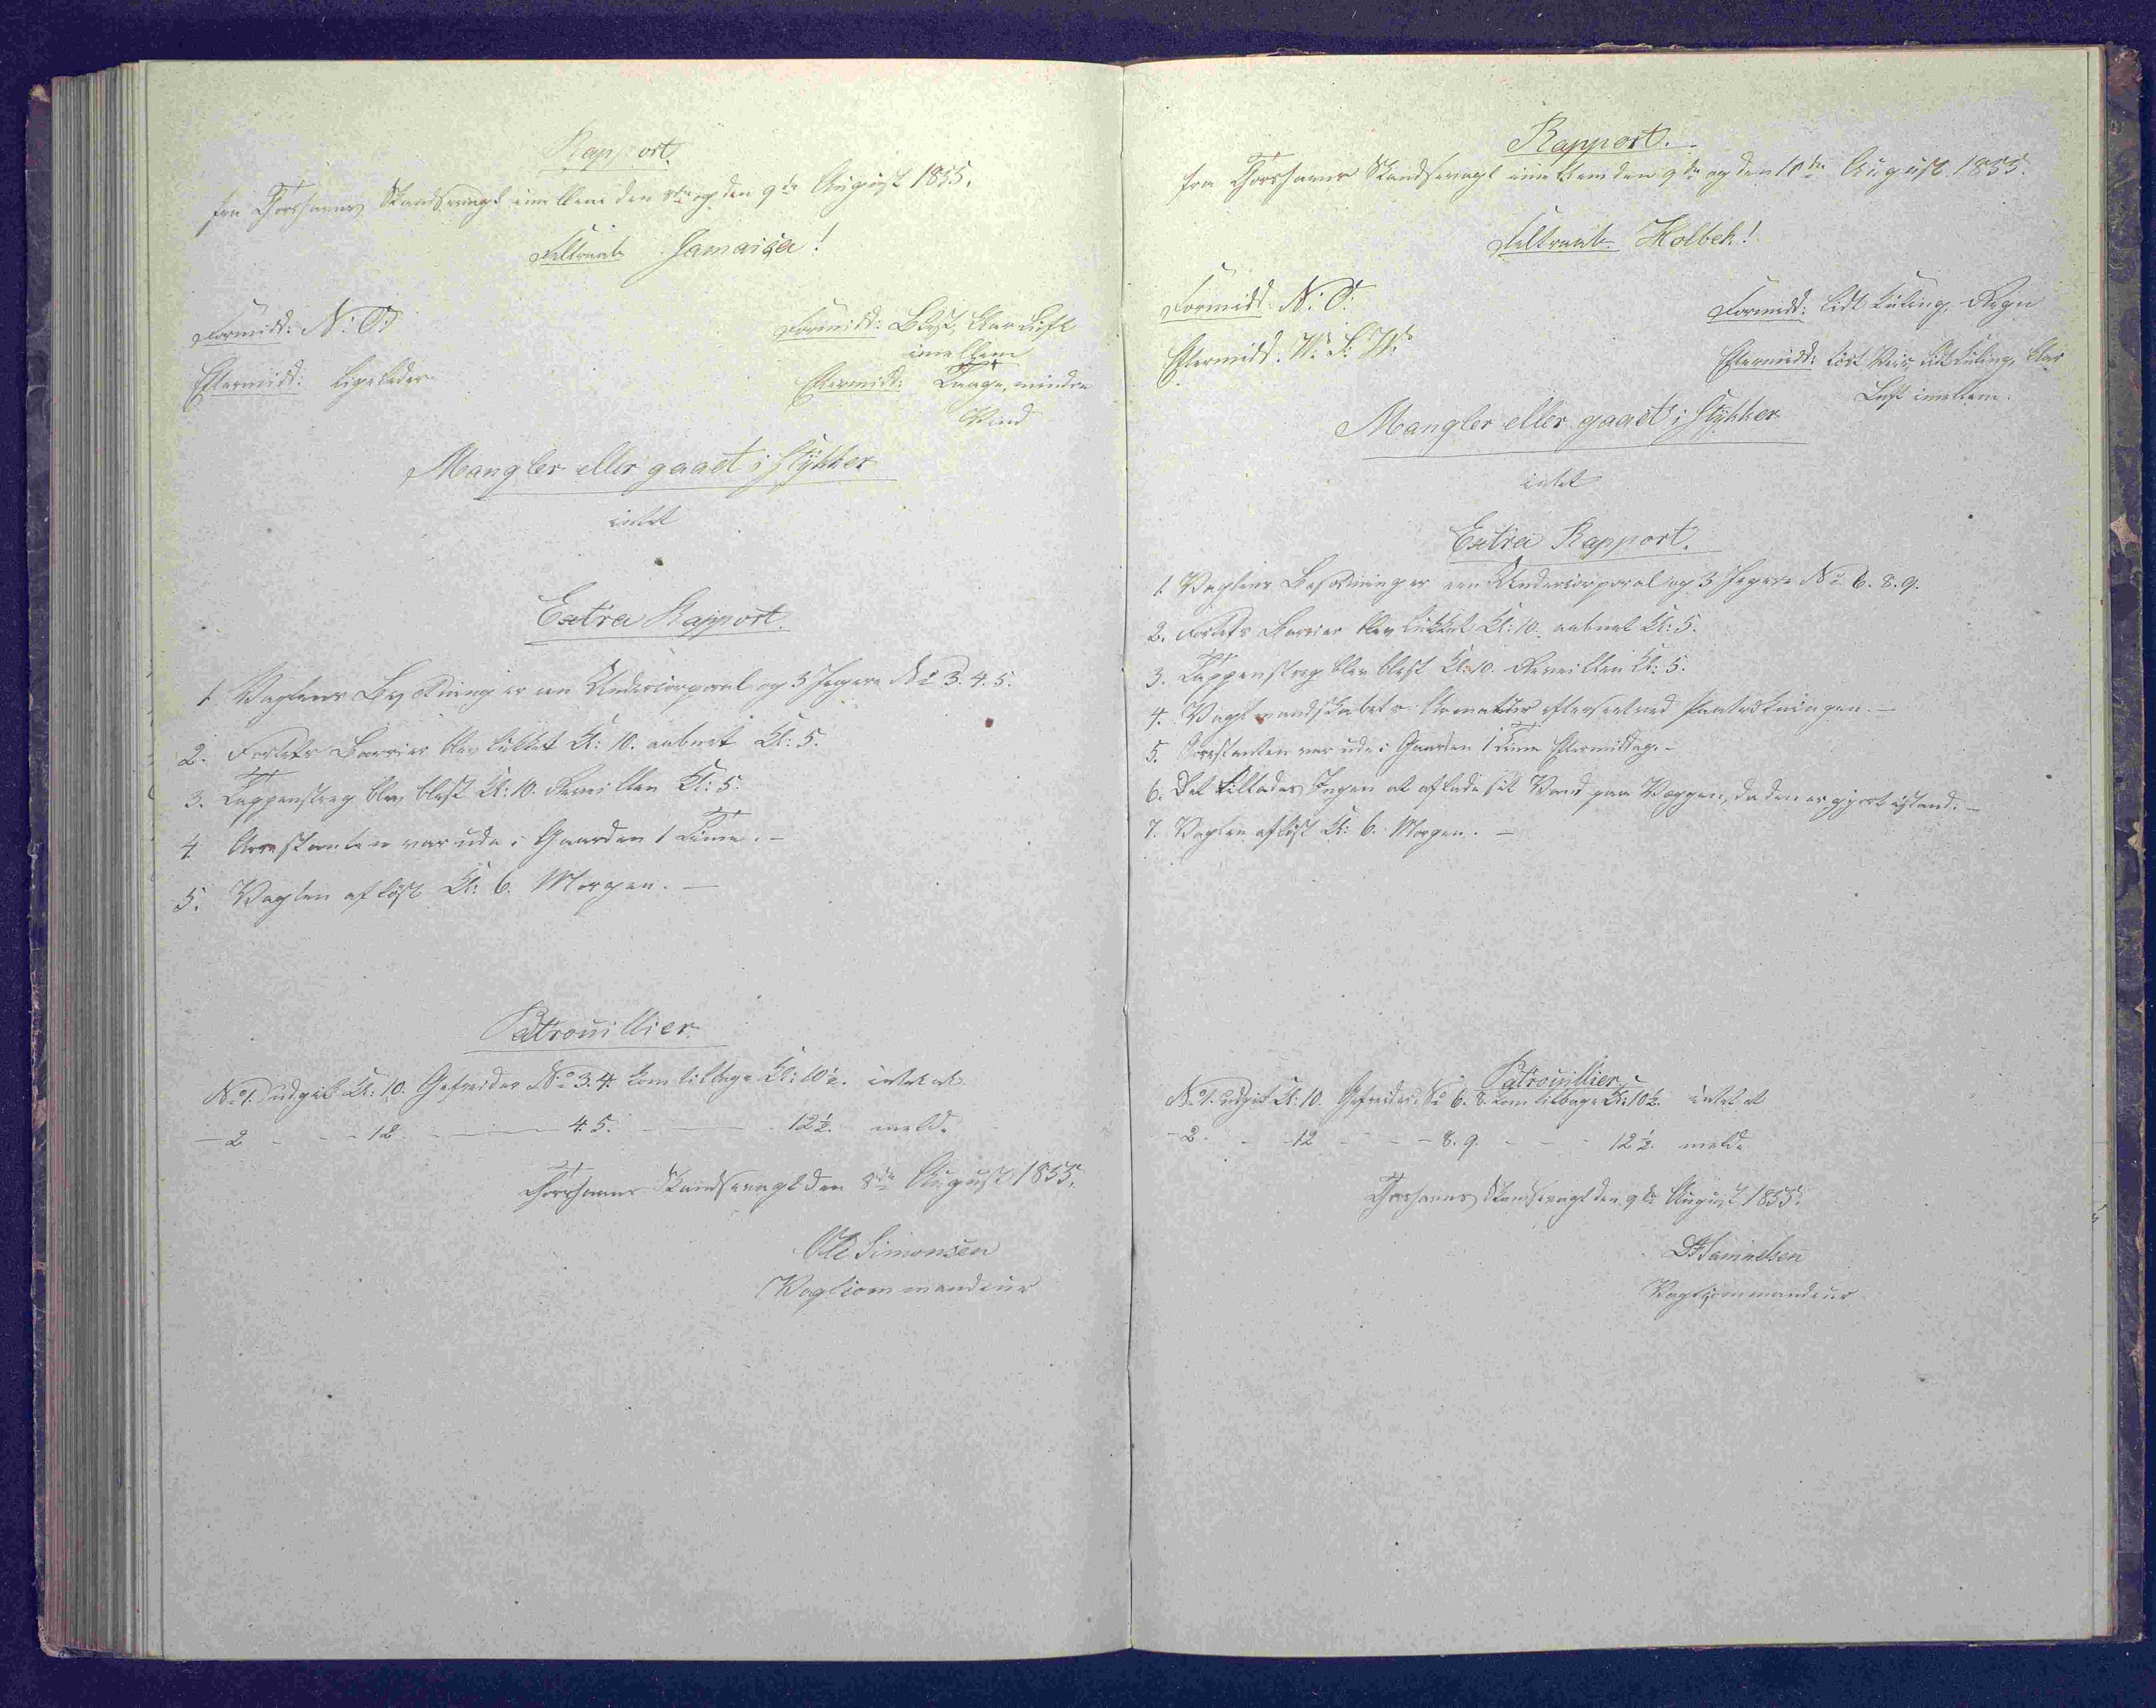 Rapport
fra Thorshavns Skandsevagt imellem den 8de og den 9de August 1855.
Feltraab Jamaica!
Formidd: N: O:
Formidd: Blæst, klar Luft
imellem
Eftermidd: ligeledes
Eftermidd: Taage, mindre
Vind
Mangler eller gaaet i stykker
intet
Extra Rapport.
1. Vagtens Besætning er een Undercorporal og 3 Jegere No 3. 4. 5.
2. Fortets Barrier blev lukket Kl: 10. aabnet Kl: 5.
3. Tappenstreg blev blæst Kl: 10. Reveillen Kl: 5.
4. Arrestanten var ude i Gaarden 1 Time. -
5. Vagten afløst Kl: 6. Morgen. -
Patrouillier
No 1. udgik Kl: 10. Gefreider No 3. 4. kom tilbage Kl: 10½. intet at
- 2 - - - 12. - - - 4. 5. - - - 12½. melde
Thorshavns Skandsevagt den 8de August 1855.
Ole Simonsen
Vagtcommandeur
Rapport.
fra Thorshavns Skandsevagt imellem den 9de og den 10de August 1855.
Feltraab Holbek!
Formidd: N: O:
Formidd: lidt Kuling, Regn
Eftermidd: V: S: V:
Eftermidd: tørt Veir, lidt Kuling, klar
Luft imellem.
Mangler eller gaaet i stykker
intet
Extra Rapport.
1. Vagtens Besætning er een Undercorporal og 3 Jegere No 6. 8. 9.
2. Fortets Barrier blev lukket Kl: 10. aabnet Kl: 5.
3. Tappenstreg blev blæst Kl: 10. Reveillen Kl: 5.
4. Vagtmandskabets Armatur efterseet ved Paatrædningen. -
5. Arrestanten var ude i Gaarden 1 Time Eftermiddag. -
6. Det tillades Ingen at aflade sit Vand paa Væggen, da den er gjort istand. -
7. Vagten afløst Kl: 6. Morgen. -
Patrouillier
No 1. udgik Kl: 10. Gefreider No 6. 8. kom tilbage Kl: 10½. intet at
- 2. - - 12 - - - 8. 9. - - - 12½. melde
Thorshavns Skandsevagt den 9de August 1855.
Samuelsen
Vagtcommandeur